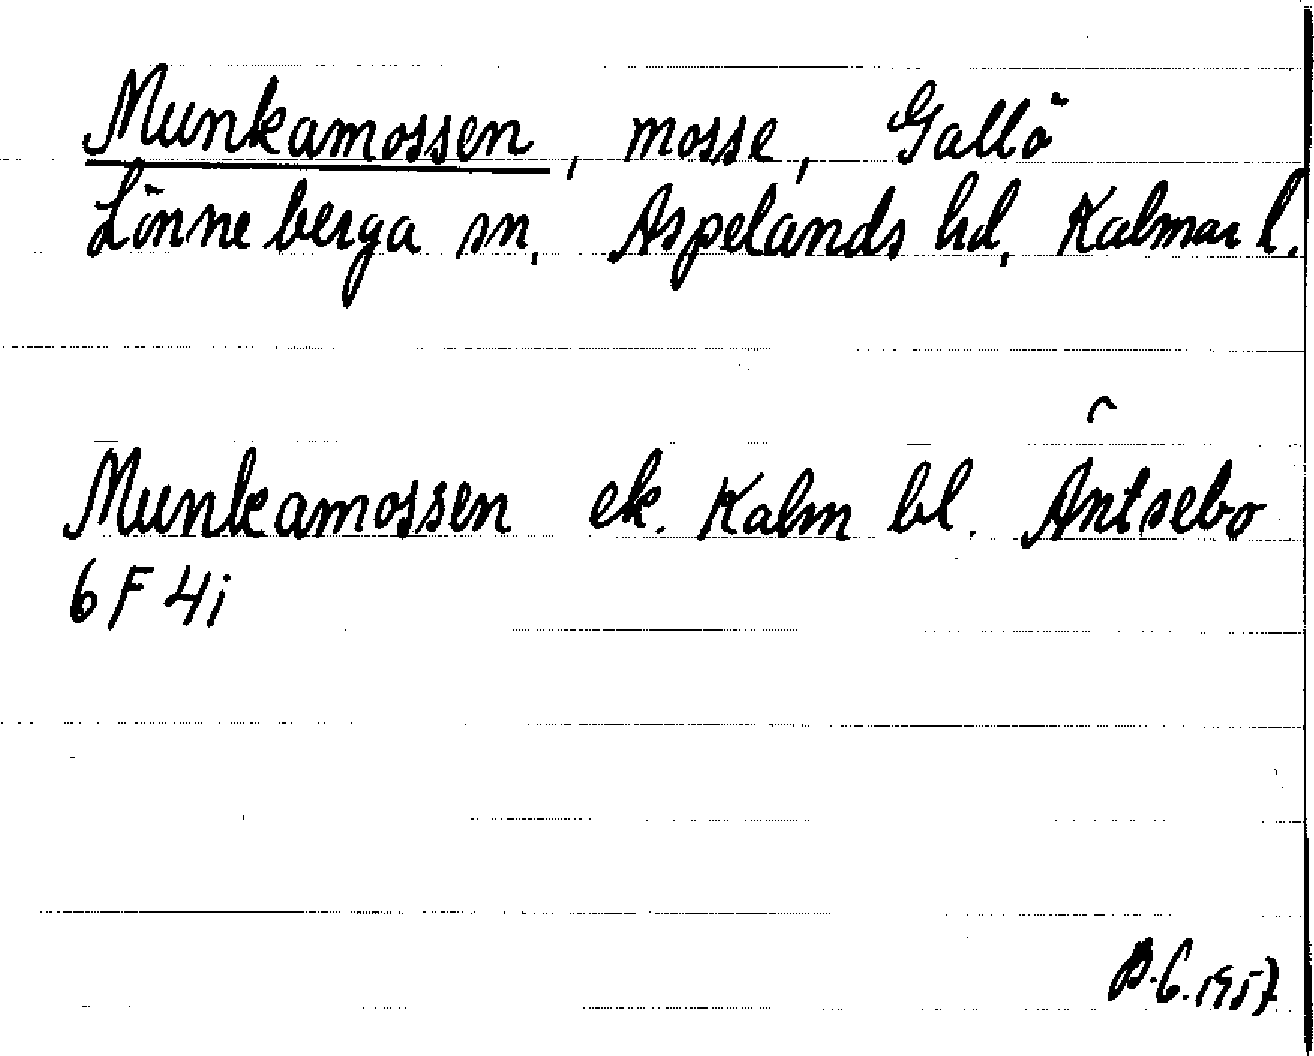 Munkamossen, mosse, Gallö
Lönneberga sn. Aspelands hd, Kalmar l.
Munkamossen ek. Kalm bl. Åntsebo
6 F 4i
B.G. 1957